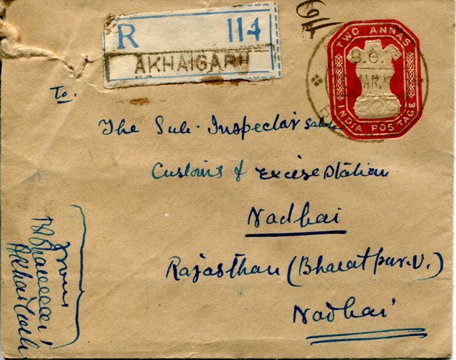 R 114
AKHAIGARH
TWO ANNAS
INDIA POSTAGE
To.
The Sub-Inspector
Customs & Excise Station
Nadhai
Rajasthan (Bharatpur.U.)
Nadhai
From